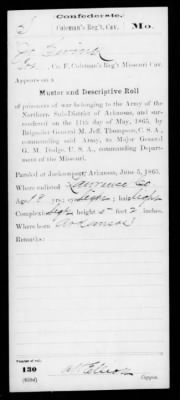 Confederate.
Coleman's Reg't, Cav. Mo.
, Co. F, Coleman's Reg't Missouri Cav.
Appears on a
Muster and Descriptive Roll
of prisoners of war belonging to the Army of the
Northern Sub-District of Arkansas, and sur-
rendered on the 11th day of May, 1865, by
Brigadier General M. Jeff. Thompson, C. S. A.,
commanding said Army, to Major General
G. M. Dodge, U. S. A., commanding Depart-
ment of the Missouri.
Paroled at Jacksonport, Arkansas, June 5, 1865.
Where enlisted Lawrence Co
Age 19 yrs; eyes ; hair light
Complexion light height 5 feet 2 inches.
Where born Arkansas
Remarks:
Number of roll:
130
Copyist.